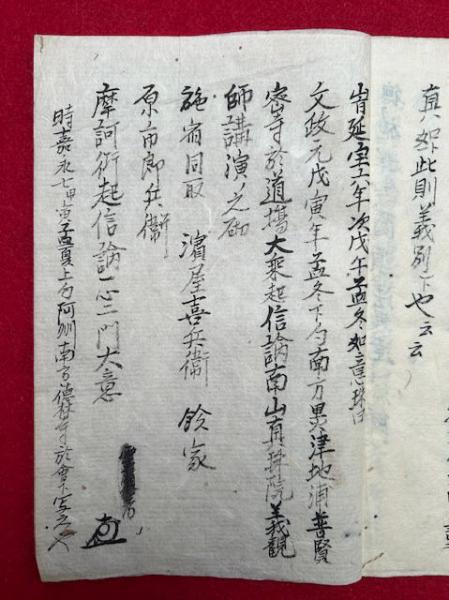 真如此則義別ト也云云
峕延宝六年次戊午孟冬如意珠日
文政元戊寅年孟冬下旬南方異津地浦普賢
密寺於道場大乗起信論南山真珠院義観
師講演ノ之砌
施宿同取 濱屋喜兵衛 飯家
原市郎兵衛
摩訶衍起信論一心二門大意
時嘉永七甲寅孟夏上旬阿州南方徳林寺於會下写之